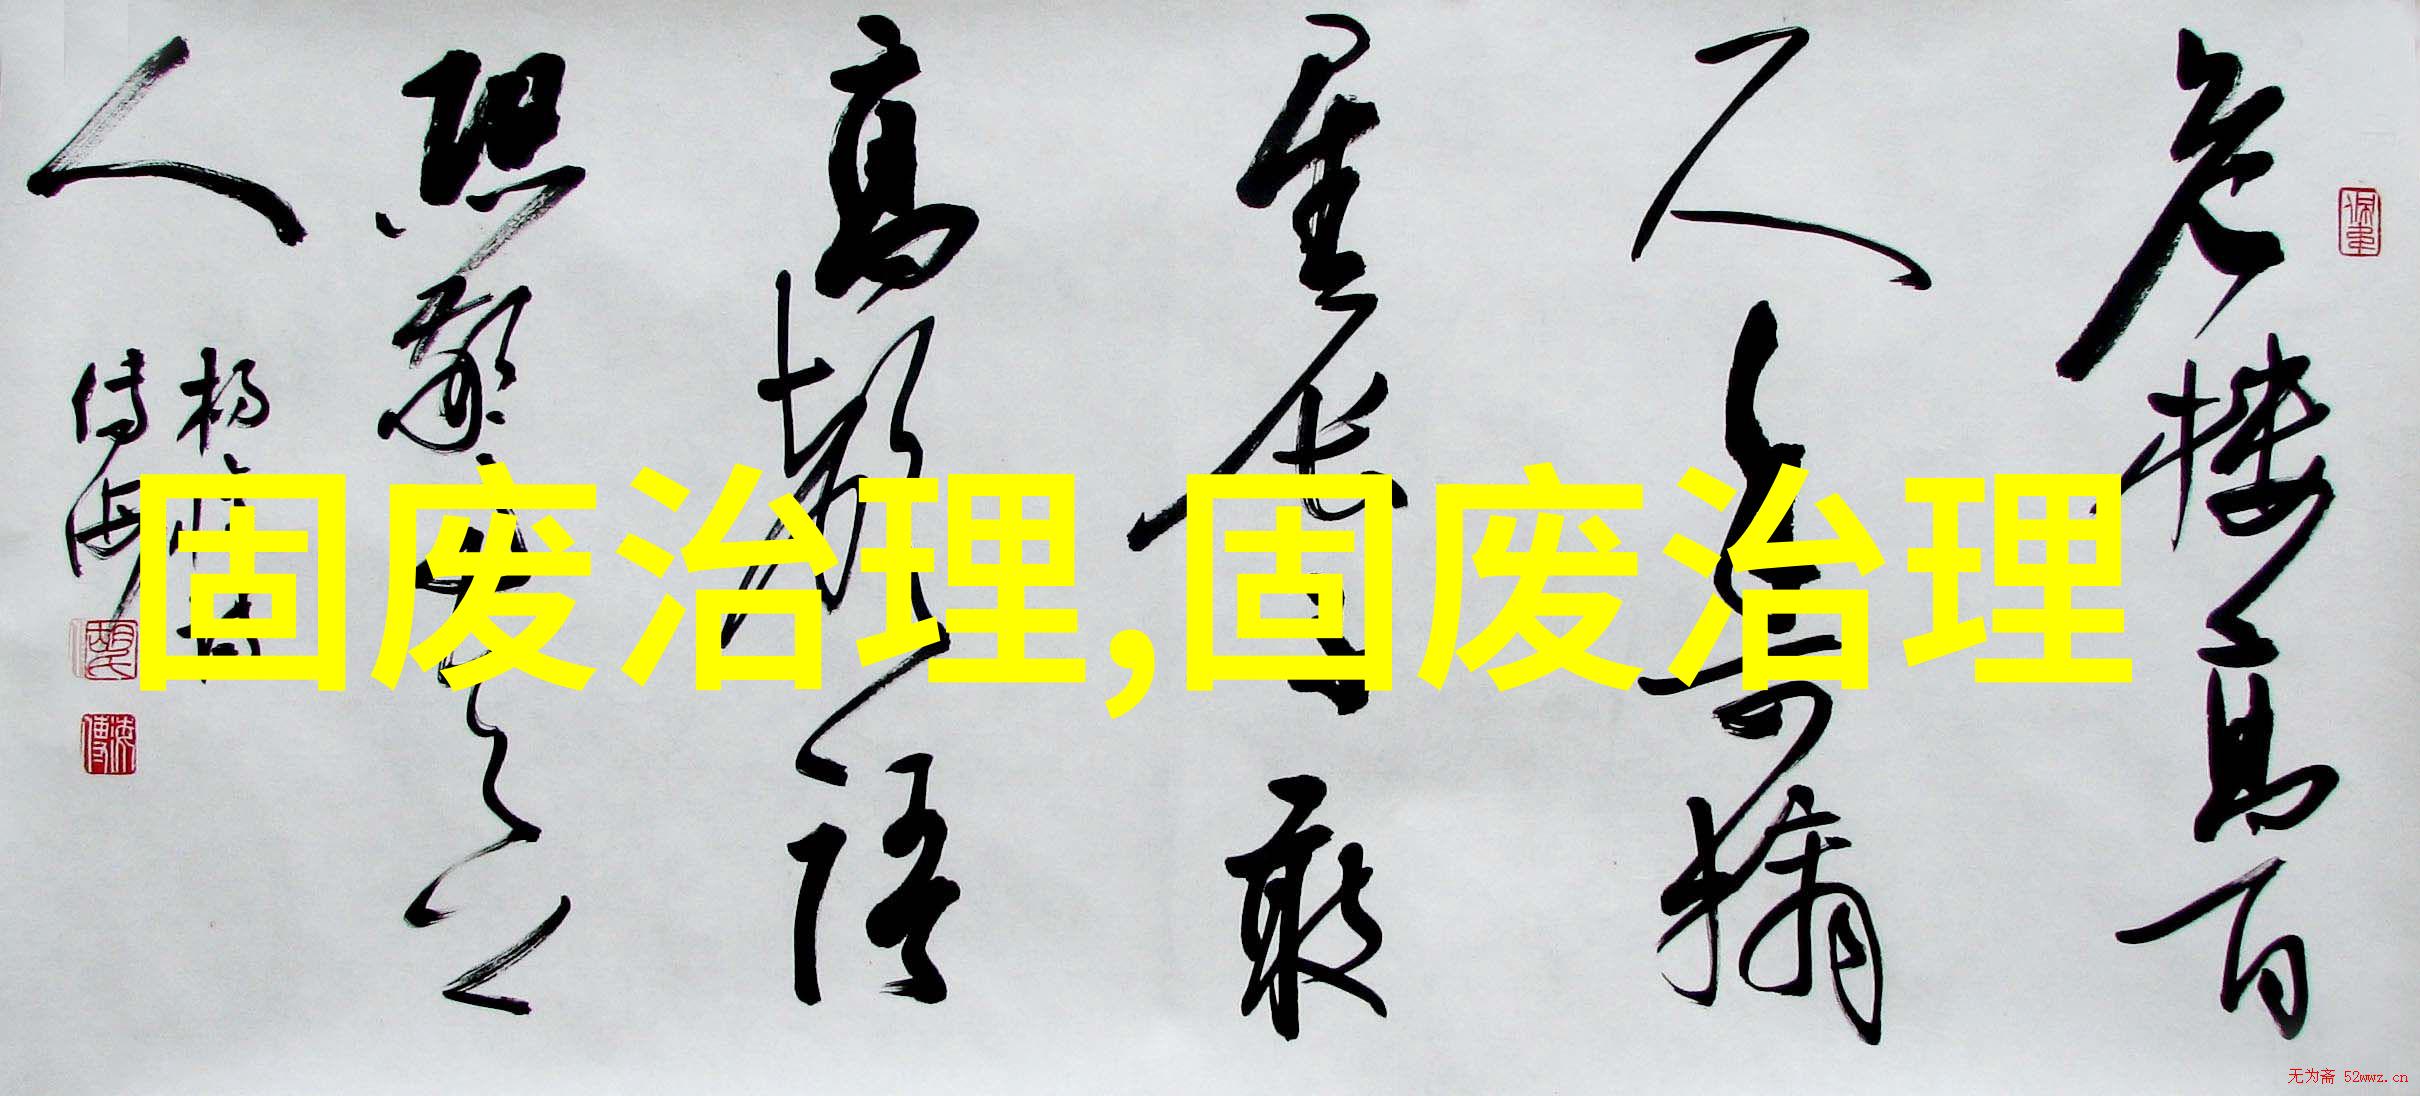 危樓高百
尺手可摘
星辰不敢
高聲語
恐驚天上
人
固废治理,固废治理
无为斋 52wwz.cn